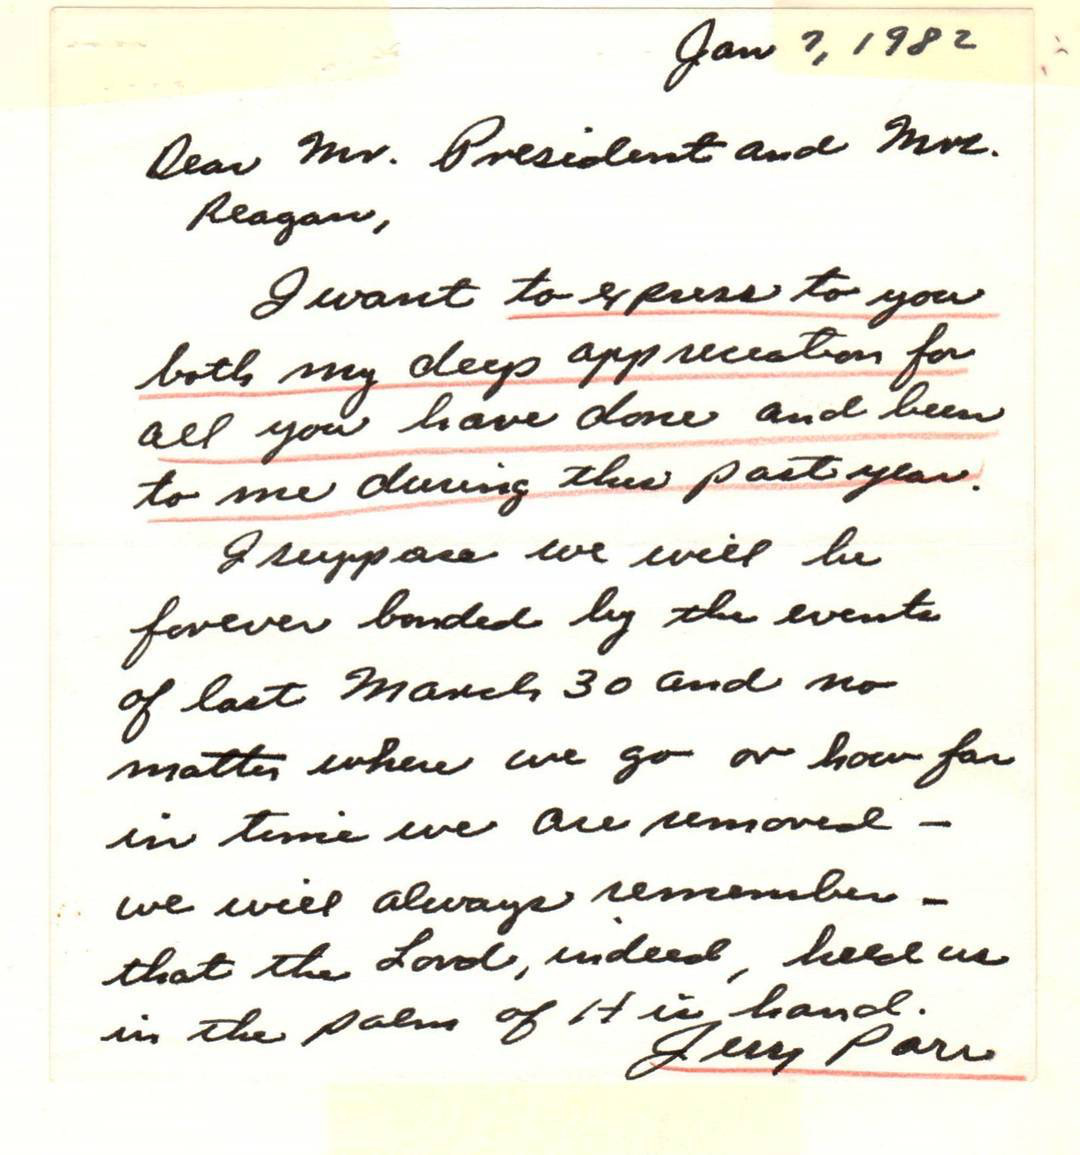 Jan 7, 1982
Dear Mr. President and Mrs.
Reagan,
I want to express to you
both my deep appreciation for
all you have done and been
to me during this past year.
I suppose we will be
forever bonded by the events
of last March 30 and no
matter where we go or how far
in time we are removed –
we will always remember –
that the Lord, indeed, held us
in the palm of His hand.
Jerry Parr